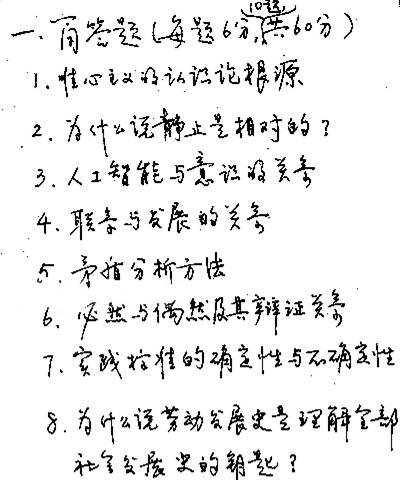 10题,
一、简答题(每题6分,共60分)
1. 唯心主义的认识论根源
2. 为什么说静止是相对的?
3. 人工智能与意识的关系
4. 联系与发展的关系
5. 矛盾分析方法
6. 必然与偶然及其辩证关系
7. 实践标准的确定性与不确定性
8. 为什么说劳动发展史是理解全部
社会发展史的钥匙?